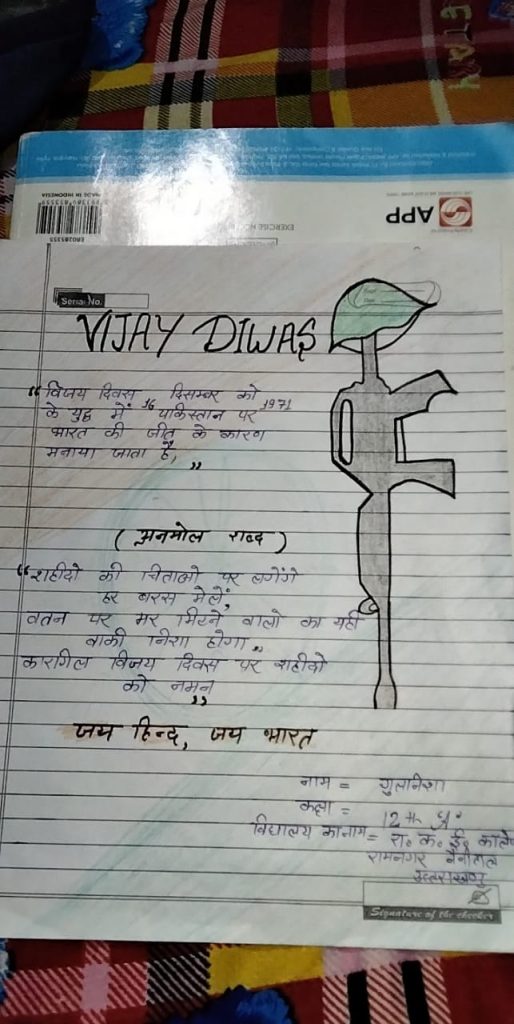 APP
EXERCISE
MADE IN INDONESIA
Serial No.
VIJAY DIWAS
“ विजय दिवस 16 दिसम्बर को 1971
के युद्ध में पाकिस्तान पर
भारत की जीत के कारण
मनाया जाता है, ”
( अनमोल शब्द )
“ शहीदो की चिताओ पर लगेंगे
हर बरस मेले,
वतन पर मर मिटने वालो का यही
वाकी निशा होगा,,
कारगिल विजय दिवस पर शहीदो
को नमन ”
जय हिन्द, जय भारत
नाम = गुलनिशा
कक्षा = 12th
विद्यालय का नाम = रा० क० ई०
रामनगर नैनीताल
उत्तराखण्ड
Signature of the checker